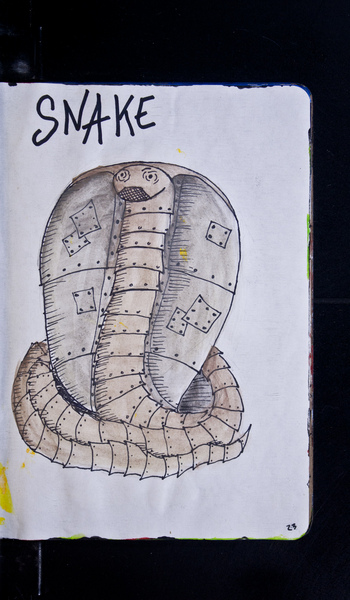 SNAKE
23